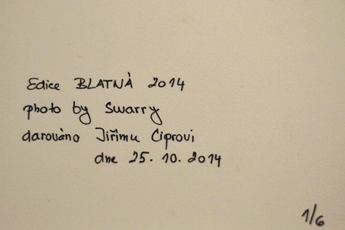 Edice BLATNÀ 2014
photo by Swarry
darováno Jiřímu Ciprovi
dne 25. 10. 2014
1/6